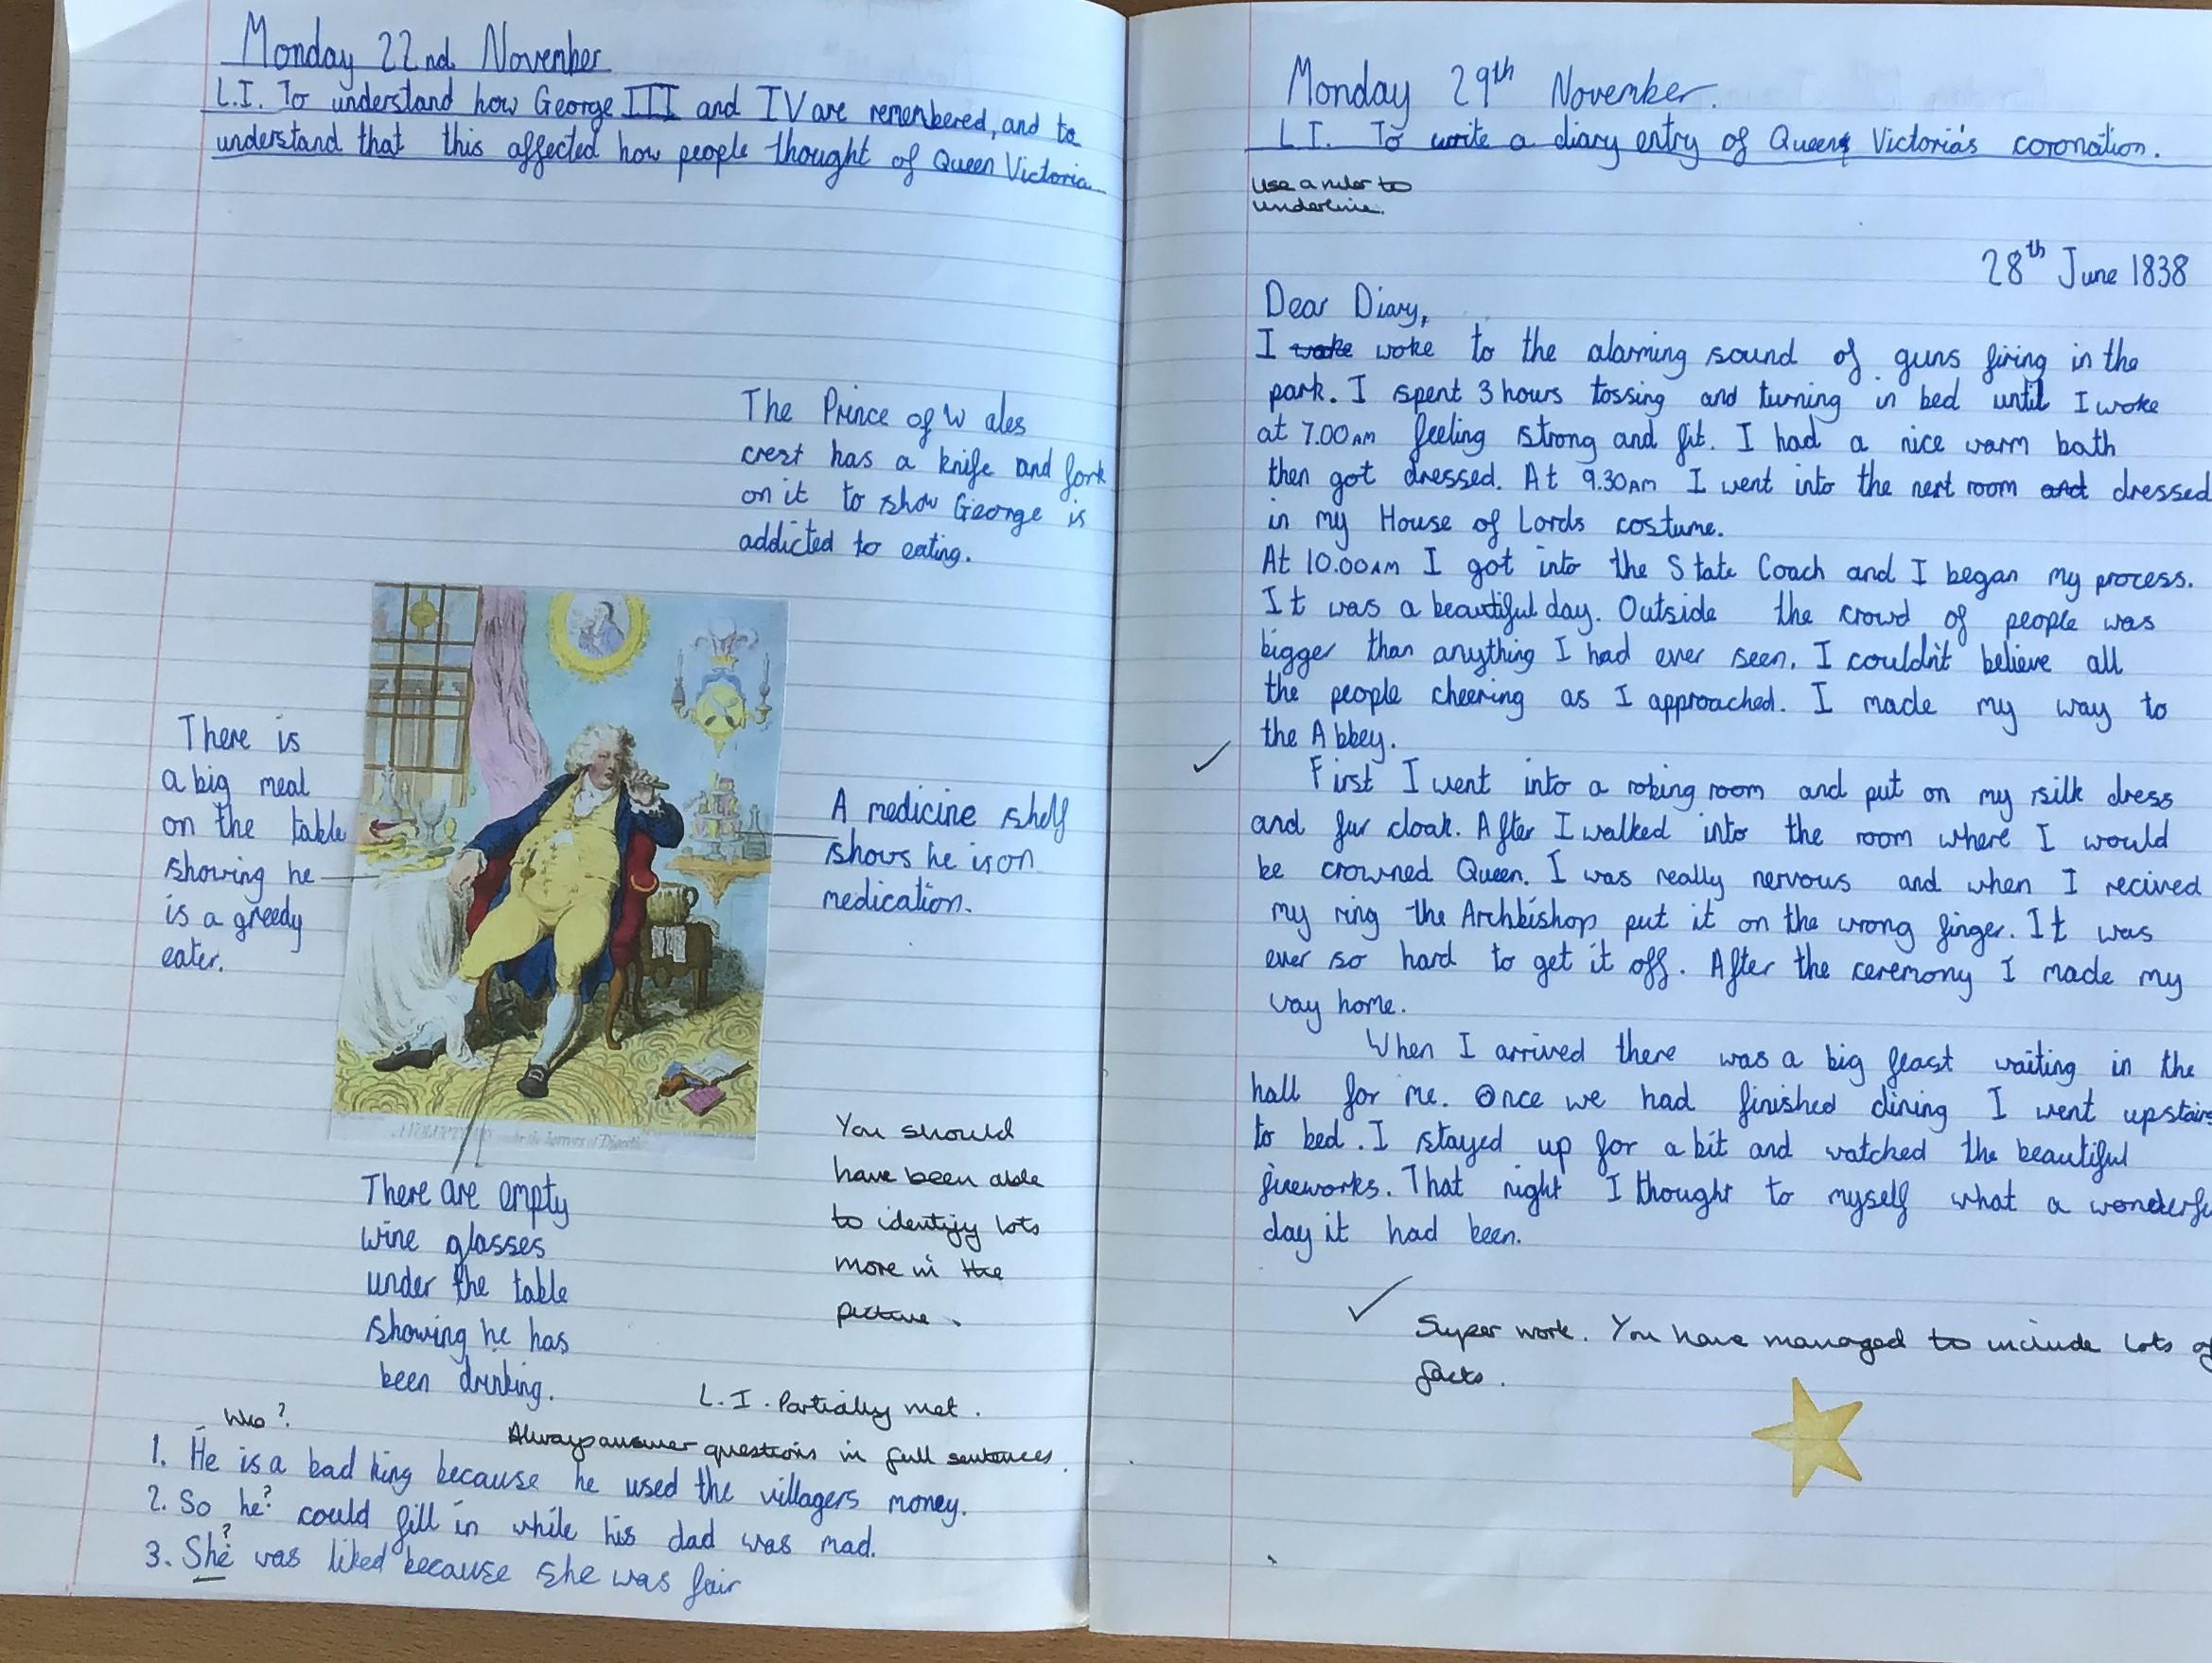 Monday 22nd November
L.I. To understand how George III and IV are remembered, and to
understand that this affected how people thought of Queen Victoria
The Prince of W ales
crest has a knife and fork
on it to show George is
addicted to eating.
There is
a big meal
on the table
showing he
is a greedy
eater.
A medicine shelf
shows he is on
medication.
under the horrors of Digestion
There are empty
wine glasses
under the table
showing he has
been drinking.
You should
have been able
to identify lots
more in the
picture.
L.I. Partially met.
Always answer questions in full sentences.
Who?
1. He is a bad king because he used the villagers money.
2. So he? could fill in while his dad was mad.
?
3. She was liked because she was fair
Monday 29th November.
L.I. To write a diary entry of Queens Victoria's coronation.
Use a ruler to
underline.
28th June 1838
Dear Diary,
I woke woke to the alarming sound of guns firing in the
park. I spent 3 hours tossing and turning in bed until I woke
at 7.00AM feeling strong and fit. I had a nice warm bath
then got dressed. At 9.30AM I went into the next room and dressed
in my House of Lords costume.
At 10.00AM I got into the State Coach and I began my process.
It was a beautiful day. Outside the crowd of people was
bigger than anything I had ever seen. I couldn't believe all
the people cheering as I approached. I made my way to
the Abbey.
First I went into a robing room and put on my silk dress
and fur cloak. After I walked into the room where I would
be crowned Queen. I was really nervous and when I recived
my ring the Archbishop put it on the wrong finger. It was
ever so hard to get it off. After the ceremony I made my
way home.
When I arrived there was a big feast waiting in the
hall for me. Once we had finished dining I went upstairs
to bed. I stayed up for a bit and watched the beautiful
fireworks. That night I thought to myself what a wonderfu
day it had been.
Super work. You have managed to include lots of
facts.